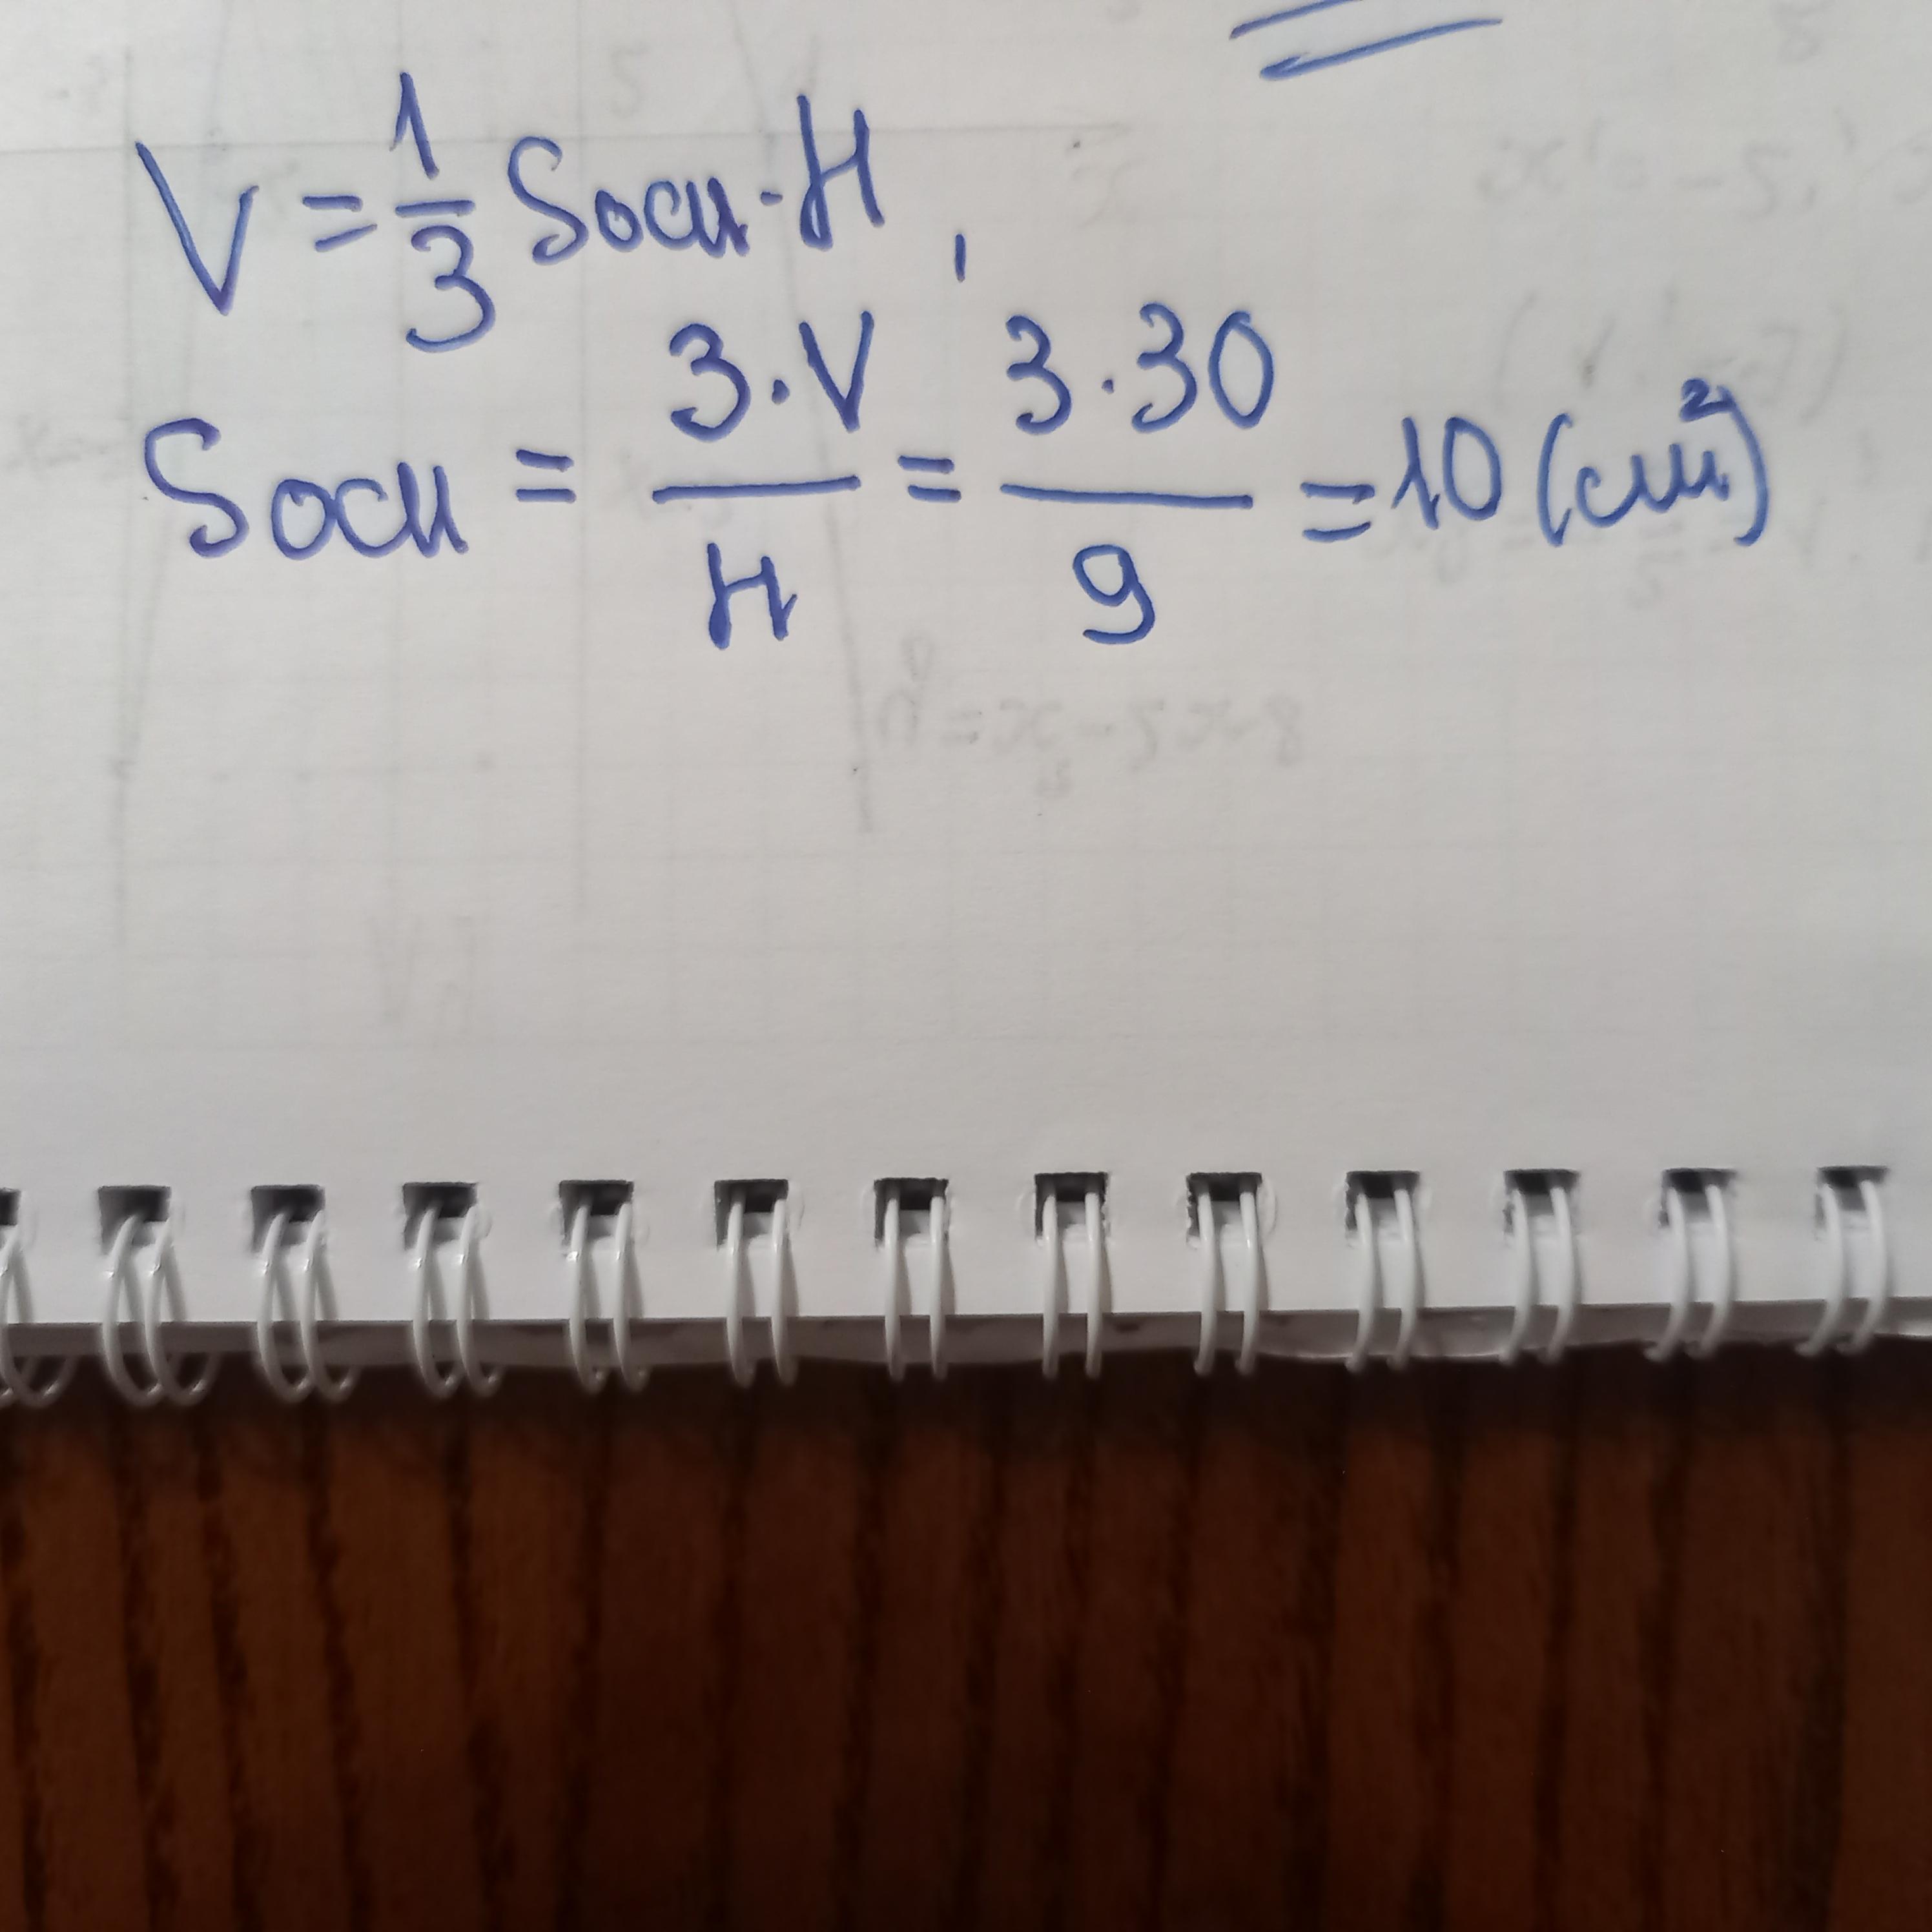 V = 1/3 Sосн · H,
Sосн = 3·V/H = 3·30/9 = 10 (см²)